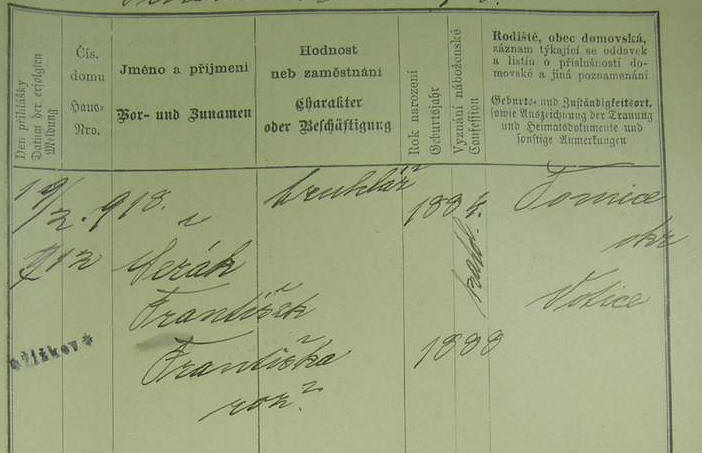 Den přihlášky
Datum der erfolgten
Meldung
Čís.
domu
Haus-
Nro.
Jméno a příjmení
Vor- und Zunamen
Hodnost
neb zaměstnání
Charakter
oder Beschäftigung
Rok narození
Geburtsjahr
Vyznání náboženské
Confession
Rodiště, obec domovská,
záznam týkající se oddavek
a listin o příslušnosti do-
movské a jiná poznamenání
Geburts- und Zuständigkeitsort,
sowie Auszeichnung der Trauung
und Heimatsdokumente und
sonstige Anmerkungen
19/2. 918.
truhlář
1884.
Tomice
okr
Votice
712
František
kath.
*Žižkov*
Františka
1888
roz.